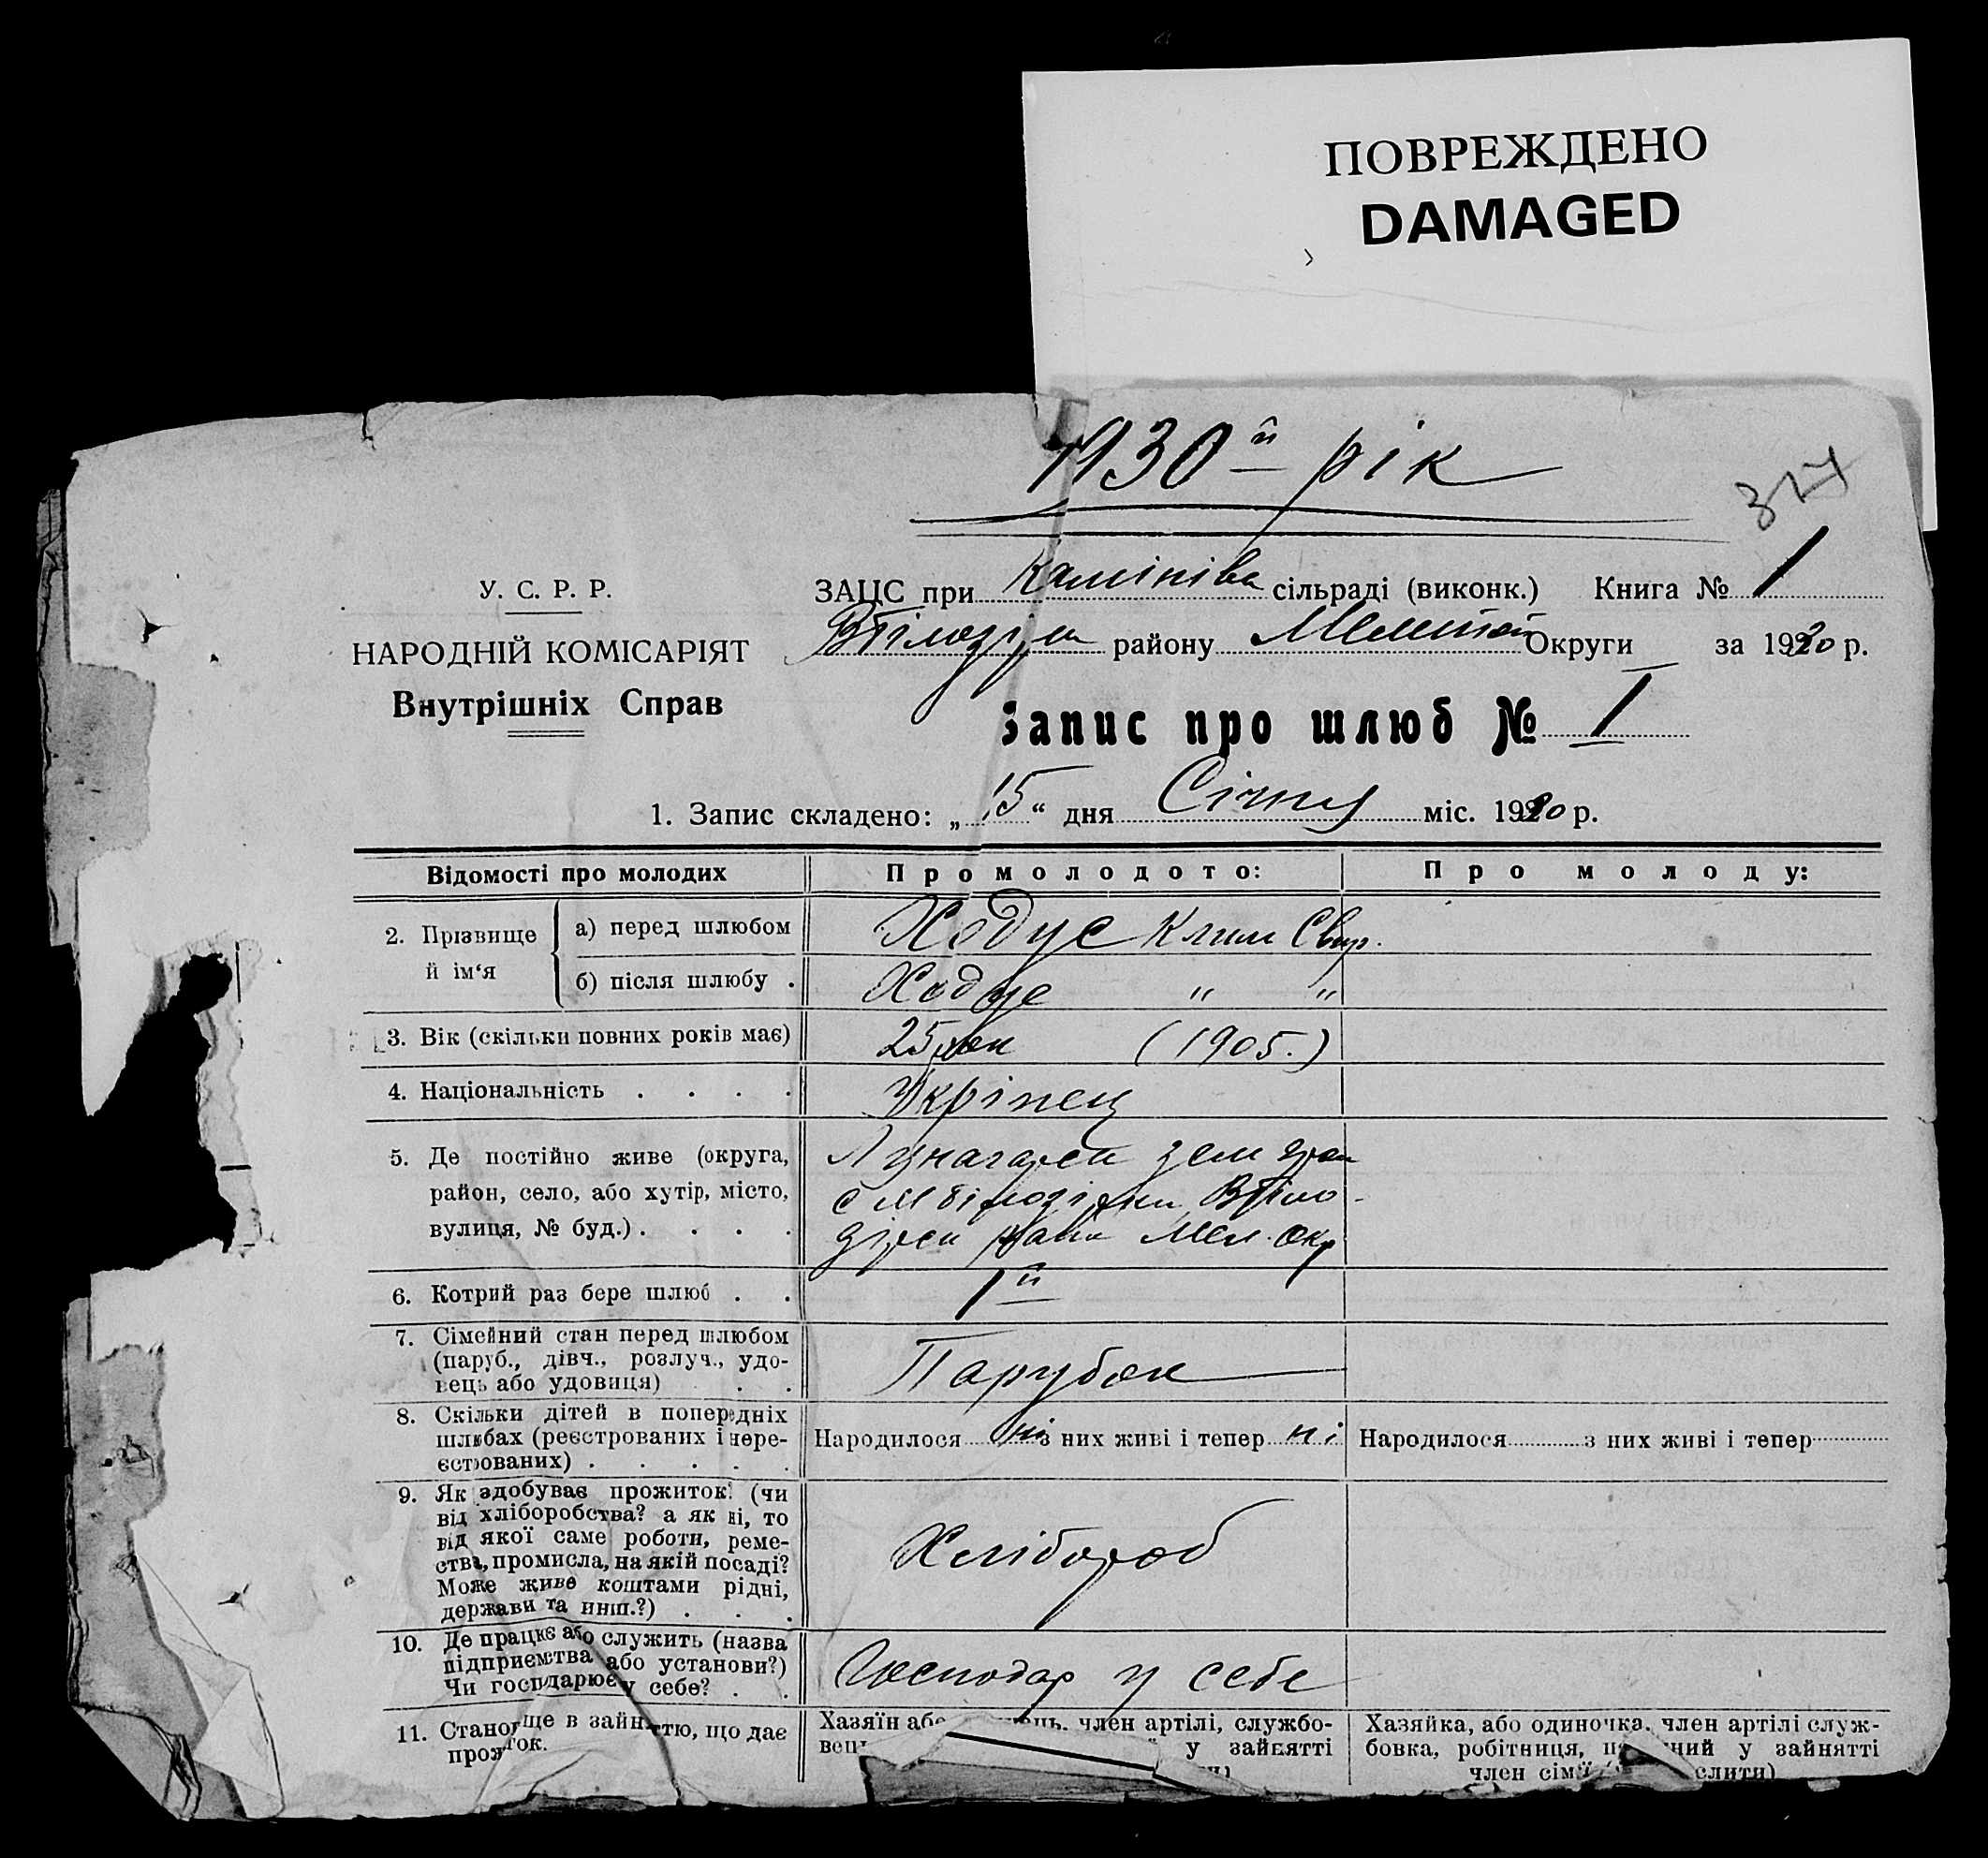 ПОВРЕЖДЕНО
DAMAGED
1930й рік
324
У. С. Р. Р.
НАРОДНІЙ КОМІСАРІЯТ
Внутрішніх Справ
ЗАЦС при сільраді (виконк.) Книга № 1
району Округи за 1930 р.
Запис про шлюб № 1
1. Запис складено: „15“ дня Січня міс. 1930 р.
Відомості про молодих
Про молодого:
Про молоду:
2. Прізвище й ім‘я
а) перед шлюбом
Ходус Клим Свир.
б) після шлюбу .
Ходус " "
3. Вік (скільки повних років має)
25 рок (1905.)
4. Національність . . . .
Укрінец
5. Де постійно живе (округа,
район, село, або хутір, місто,
вулиця, № буд.) . . . .
зем
с М Білозірки
Мел. Окр
6. Котрий раз бере шлюб . .
1й
7. Сімейний стан перед шлюбом
(паруб., дівч., розлуч., удо-
вець або удовиця) . .
Парубок
8. Скільки дітей в попередніх
шлюбах (реєстрованих і нере-
єстрованих) . . . . .
Народилося ні з них живі і тепер ні
Народилося з них живі і тепер
9. Як здобуває прожиток? (чи
від хліборобства? а як ні, то
від якої саме роботи, реме-
ства, промисла, на якій посаді?
Може живе коштами рідні,
держави та инш.?) . . .
Хлібороб
10. Де працює або служить (назва
підприємства або установи?)
Чи господарює у себе? . .
Господар у себе
11. Становище в зайняттю, що дає
прожиток.
Хазяїн або член артілі, службо-
у зайнятті
Хазяйка, або одиночка, член артілі служ-
бовка, робітниця, у зайнятті
член сім'ї